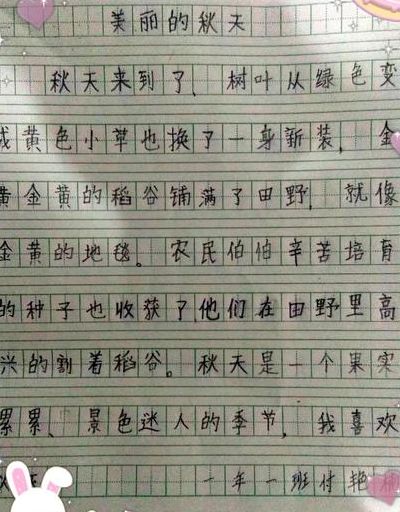 美丽的秋天
秋天来到了、树叶从绿色变
成黄色小草也换了一身新装,金
黄金黄的稻谷铺满了田野,就像
金黄的地毯。农民伯伯辛苦培育
的种子也收获了,他们在田野里高
兴的割着稻谷。秋天是一个果实
累累、景色迷人的季节,我喜欢
一年一班付艳